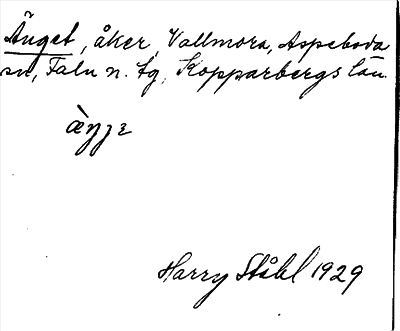 Änget, åker, Vallmora, Aspeboda
sn, Falu n. tg, Kopparbergs län.
Harry Ståhl 1929